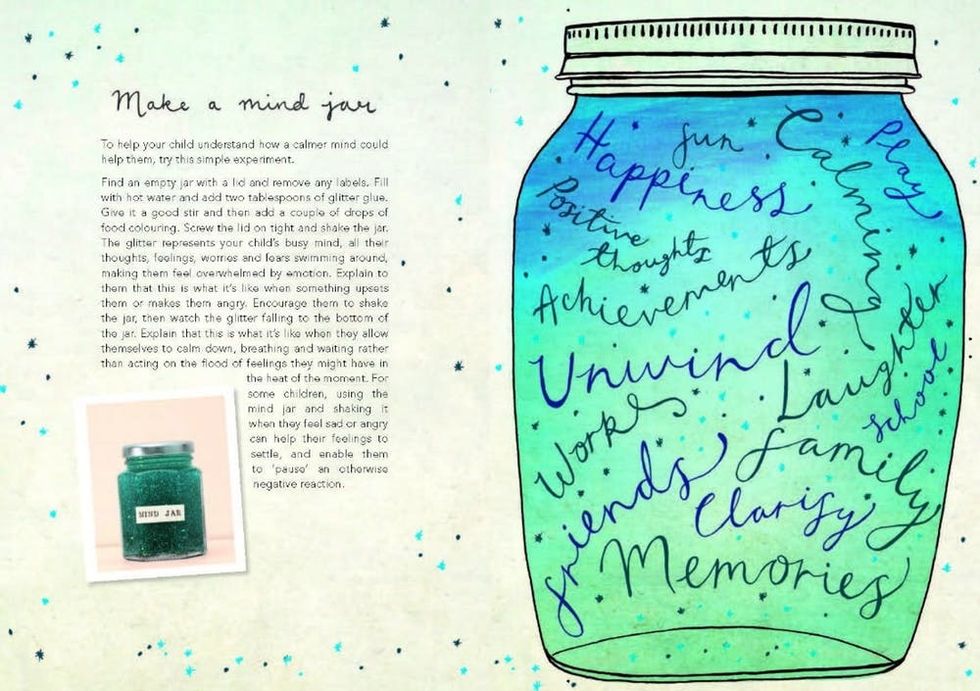 Make a mind jar
To help your child understand how a calmer mind could
help them, try this simple experiment.
Find an empty jar with a lid and remove any labels. Fill
with hot water and add two tablespoons of glitter glue.
Give it a good stir and then add a couple of drops of
food colouring. Screw the lid on tight and shake the jar.
The glitter represents your child's busy mind, all their
thoughts, feelings, worries and fears swimming around,
making them feel overwhelmed by emotion. Explain to
them that this is what it's like when something upsets
them or makes them angry. Encourage them to shake
the jar, then watch the glitter falling to the bottom of
the jar. Explain that this is what it's like when they allow
themselves to calm down, breathing and waiting rather
than acting on the flood of feelings they might have in
the heat of the moment. For
some children, using the
mind jar and shaking it
when they feel sad or angry
can help their feelings to
settle, and enable them
to 'pause' an otherwise
negative reaction.
MIND JAR
Happiness
fun
Calming
Play
Positive
thoughts
Achievements
Unwind
Laughter
School
Work
family
friends
Clarify
Memories